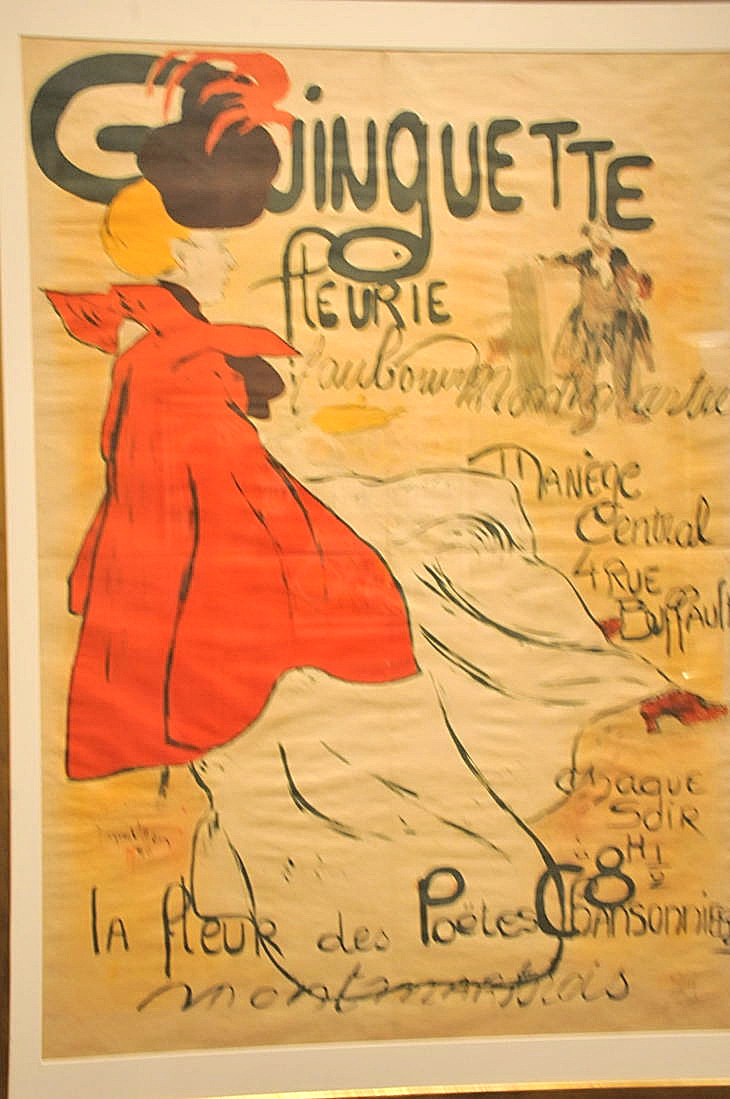 GUINGUETTE
fleurie
faubourg Montmartre
Manège
Central
4 RUE
Buffault
Chaque
SOIR
à 8H 1/2
la fleur des Poëtes Chansonniers
montmartrois